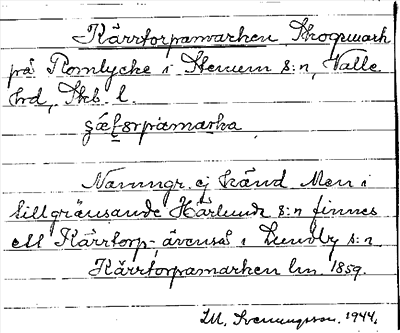 Kärrtorpamarken Skogsmark
på Romlycke i Stenum s:n, Valle
hrd, Skb l.
Namngr. ej känd. Men i
tillgränsande Härlunda s:n finnes
ett Kärrtorp, ävenså i Lundby s:n.
Kärrtorpamarken lm. 1859.
M. Svenungsson. 1944.